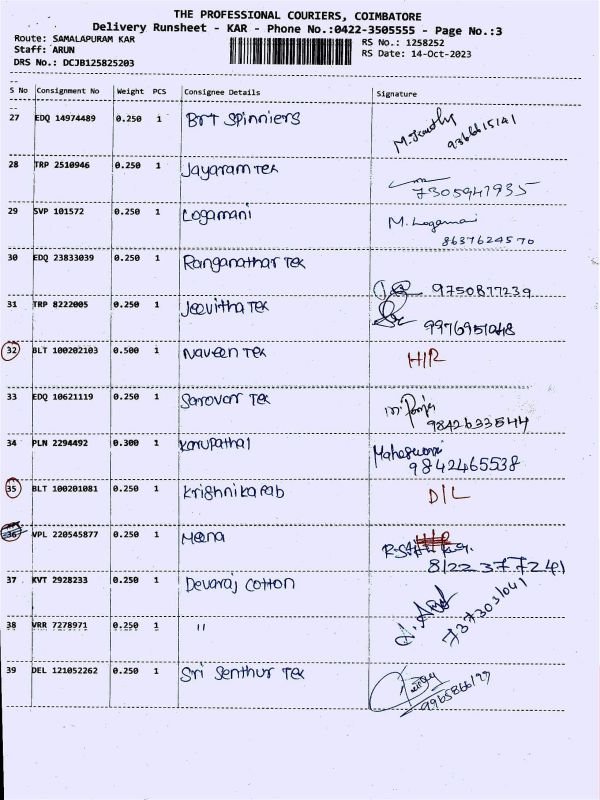 THE PROFESSIONAL COURIERS, COIMBATORE
Delivery Runsheet - KAR - Phone No.:0422-3505555 - Page No.:3
Route: SAMALAPURAM KAR RS No.: 1258252
Staff: ARUN RS Date: 14-Oct-2023
DRS No.: DCJB125825203
S No Consignment No Weight PCS Consignee Details Signature
27 EDQ 14974489 0.250 1 BRT Spinniers
28 TRP 2510946 0.250 1 Jayaram Tex
7305947935
29 SVP 101572 0.250 1 Logamani M. Logamani
8637624570
30 EDQ 23833039 0.250 1 Ranganathar Tex
9750877239
31 TRP 8222005 0.250 1 Jeevitha Tex
9976951048
32 BLT 100202103 0.500 1 Naveen Tex H/R
33 EDQ 10621119 0.250 1 Sarovar Tex
9842633544
34 PLN 2294492 0.300 1 Karupathal Maheswari
9842465538
35 BLT 100201081 0.250 1 Krishnika Fab D/L
36 VPL 220545877 0.250 1 Meena
8122377241
37 KVT 2928233 0.250 1 Devaraj Cotton
7373031041
38 VRR 7278971 0.250 1 "
39 DEL 121052262 0.250 1 Sri Senthur Tex